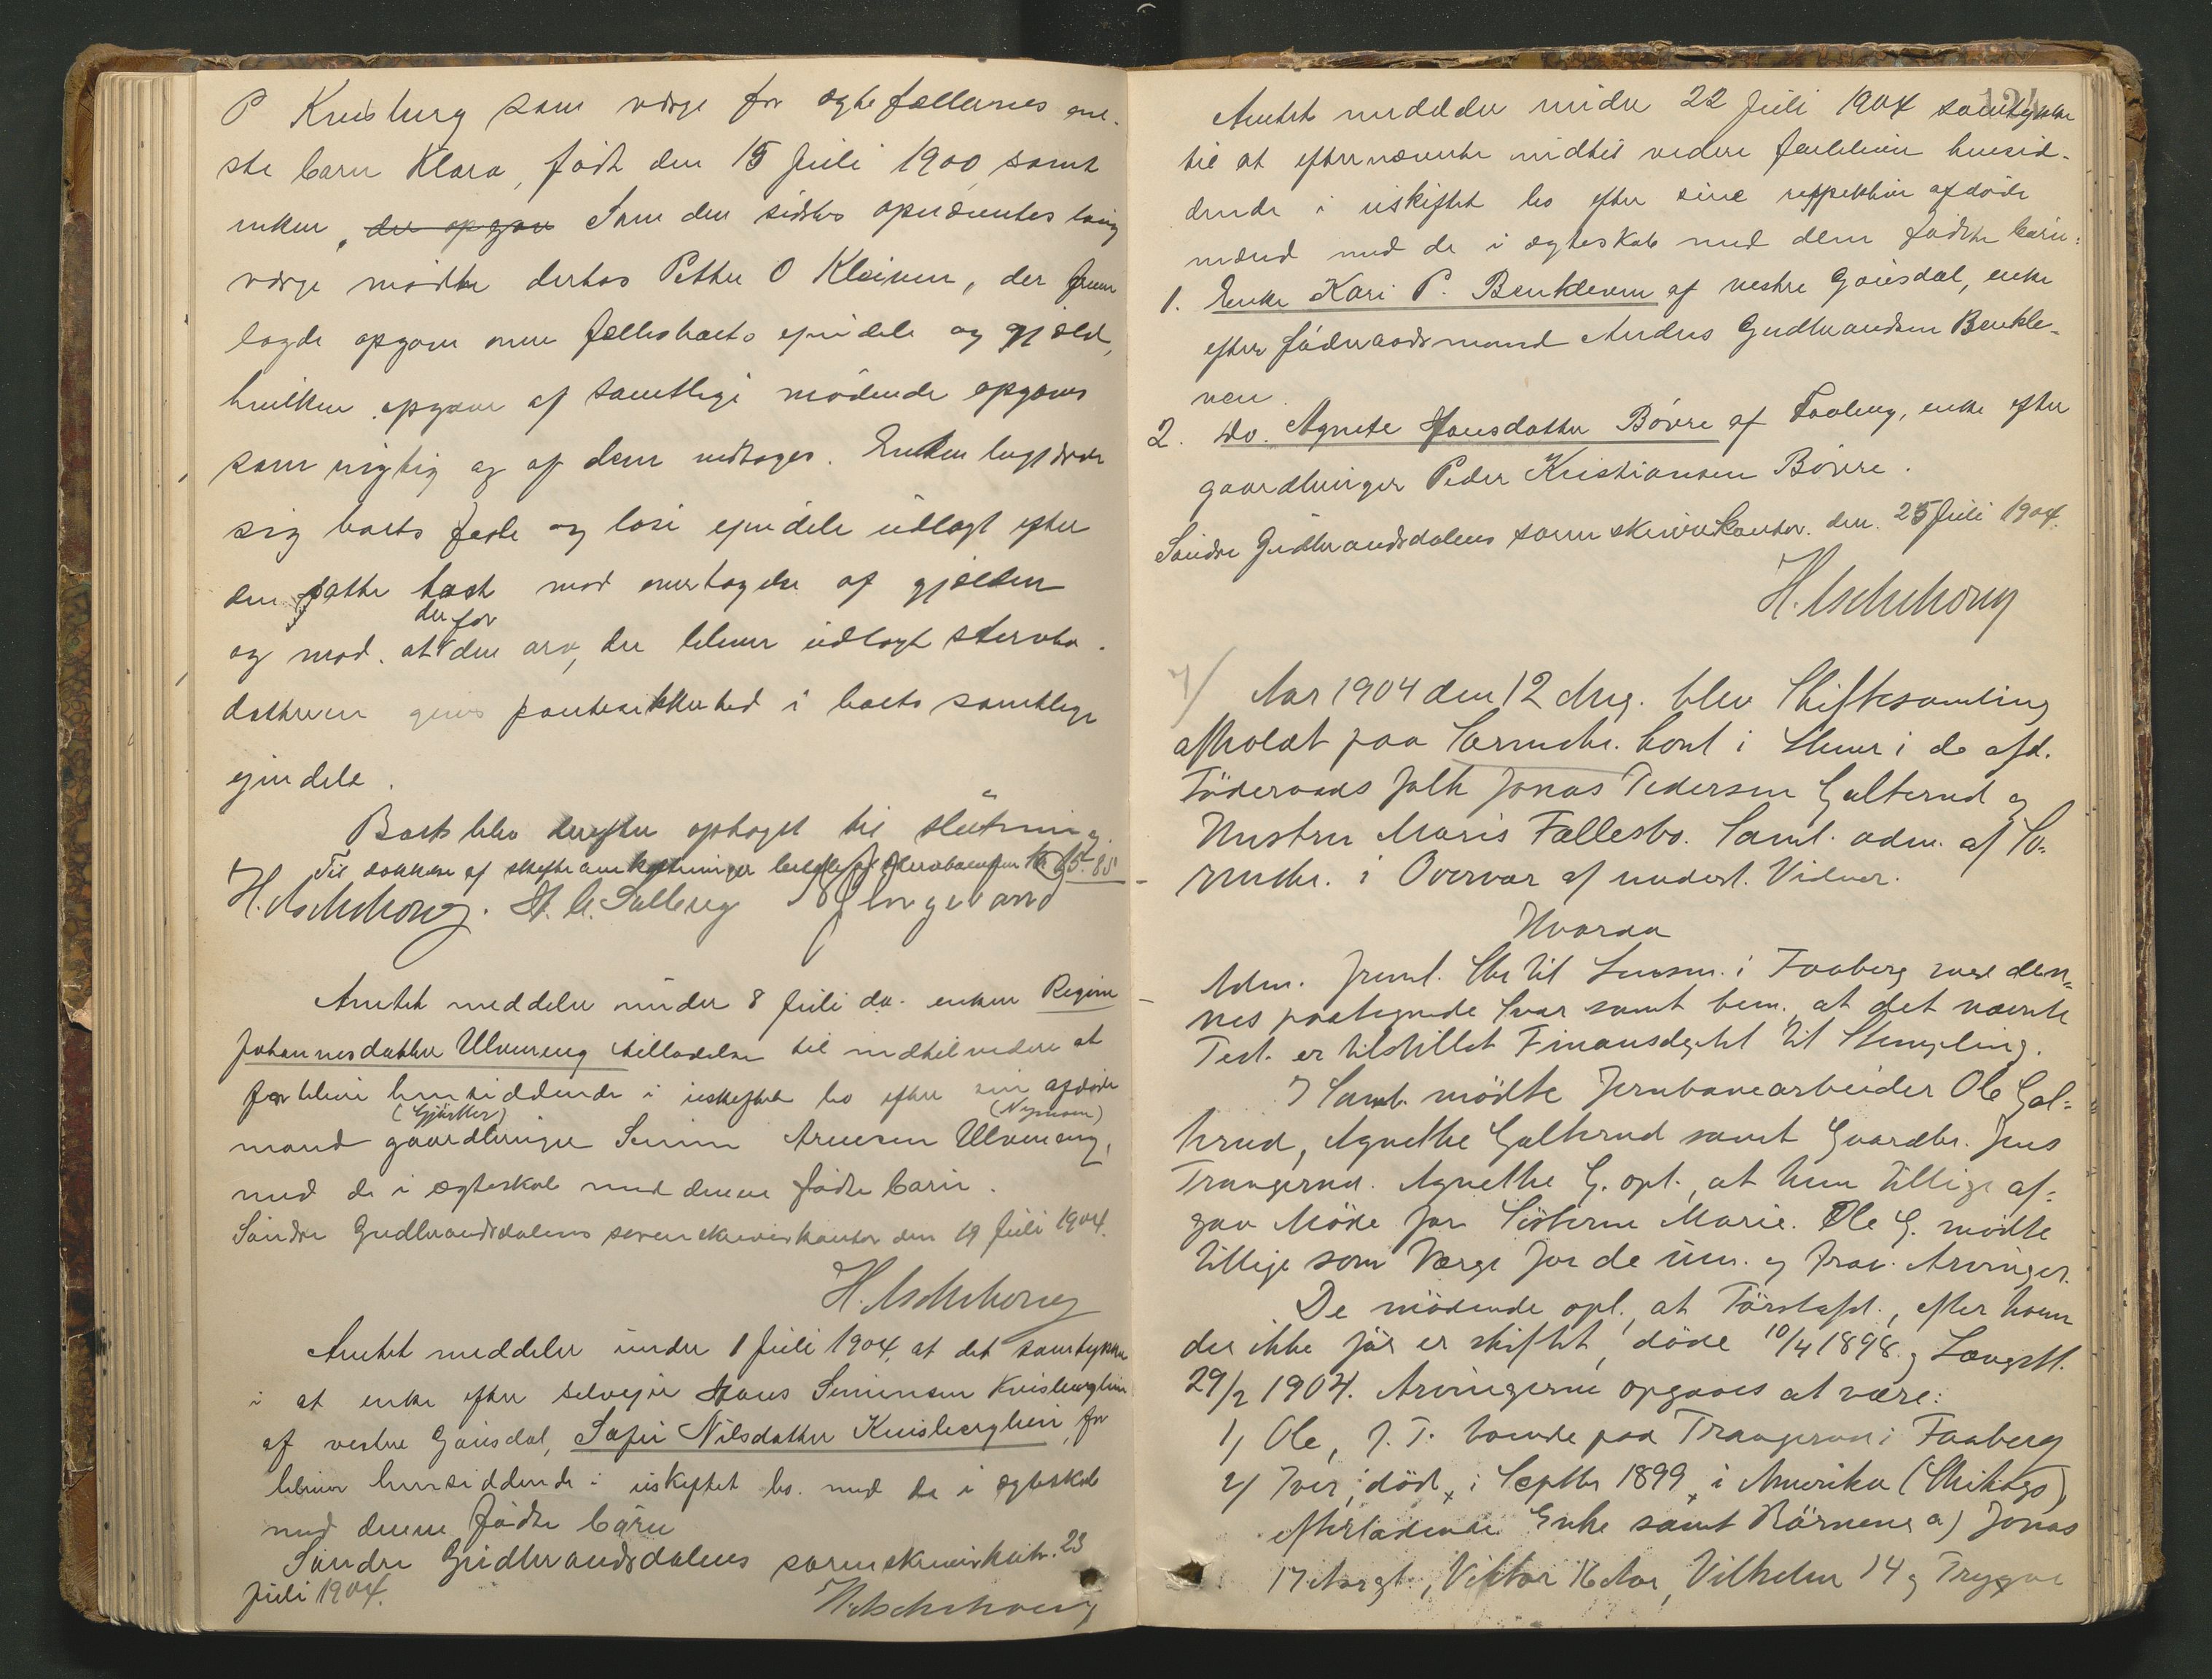 P Kruisberg som værge for ægtefællernes ene-
ste barn Klara, født den 15 Juli 1900, samt
enken, der opgav Som den sidstes opnævntes laug
værge mødte derhos Petter O Kleiven, der frem
lagde opgave over fællesboets eiendele og gjæld,
hvilken opgave af samtlige mødende opgaves
som rigtig og af dem vedtoges. Enken begjærede
sig boets faste og løse eiendele udlagt efter
den satte taxt mod overtagelse af gjælden
og mod at der for den arv, der bliver udlagt stervbo-
datteren gives pantesikkerhed i boets samtlige
eiendele.
Boets blev derefter optaget til slutning.
Til dækkelse af skifteomkostninger kr 65.85
H. Aschehoug. H. A. Salberg
Amtet meddeler under 8 Juli da. enken Regine
Johannesdatter Ulveneng tilladelse til indtil videre at
forblive hensiddende i uskiftet bo efter sin afdøde
mand (Gjørtler) gaardbruger Simen Arnesen Ulveneng, (Nymoen)
med de i ægteskab med denne fødte børn.
Søndre Gudbrandsdalens sorenskriverkontor den 19 Juli 1904.
H. Aschehoug
Amtet meddeler under 1 Juli 1904, at det samtykker
i at enke efter selveier Hans Simensen Kruisberglien
af vestre Gausdal, Sofie Nilsdatter Kruisberglien, for
bliver hensiddende i uskiftet bo med de i ægteskab
med denne fødte børn
Søndre Gudbrandsdalens sorenskriverkontr. 23
Juli 1904.
H. Aschehoug
124
Amtet meddeler under 22 Juli 1904 samtykke
til at efternævnte indtil videre forbliver hensid-
dende i uskiftet bo efter sine respektive afdøde
mænd med de i ægteskab med dem fødte børn:
1. Enke Kari P. Benkleven af vestre Gausdal, enke
efter føderaadsmand Andres Gudbrandsen Benkle-
ven
2. Do. Agnete Hansdatter Bøvre af Faaberg, enke efter
gaardbruger Peder Kristiansen Bøvre.
Søndre Gudbrandsdalens sorenskriverkontor den 25 Juli 1904.
H. Aschehoug
Aar 1904 den 12 Aug. blev Skiftesamling
afholdt paa Sorenskr. kont i Stuer i de afd.
Föderaads folk Jonas Pedersen Galterud og
Hustru Maris Fællesbo. Saml. adm. af So-
renskr. i Overvær af undert. Vidner.
Hvorda
Adm. freml. Skr til Lensm. i Faaberg med den-
nes paategnede Svar samt bem. at det nævnte
Test. er tilstillet Finansdeptet til Stempling.
I Saml. mödte Jernbanearbeider Ole Gal-
terud, Agnethe Galterud samt Gaardbr. Jens
Trangerud. Agnethe G. opl., at hun tillige af-
gav Möde for Söstren Marie. Ole G. mödte
tillige som Værge for de um. og frav. Arvinger.
De mödende opl., at Förstafd., efter hvem
der ikke för er skiftet, döde 10/4 1898 og Længstl.
29/2 1904. Arvingerne opgaves at være:
1) Ole, f. T. boende paa Trangerud i Faaberg
2) Iver, död, i Septbr 1899, i Amerika (Chikago),
efterladende Enke samt Börnene a) Jonas
17 Aar gl., Viktor 16 Aar, Vilhelm 14 og Trygve